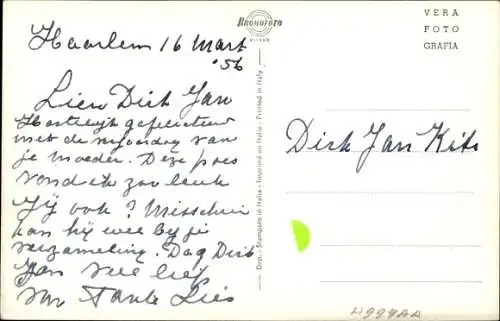 Haarlem 16 Mart
'56
Lieve Dirk Jan
Hartelijk gefeliciteerd
met de verjaardag van
je moeder. Deze poes
vond ik zoo leuk
Jij ook? Misschien
kan hij wel bij je
verzameling. Dag Dirk
Jan veel liefs
van Tante Lies
BROMOFOTO
MILANO
Dep. - Stampato in Italia - Imprimé en Italie - Printed in Italy
VERA
FOTO
GRAFIA
Dirk Jan